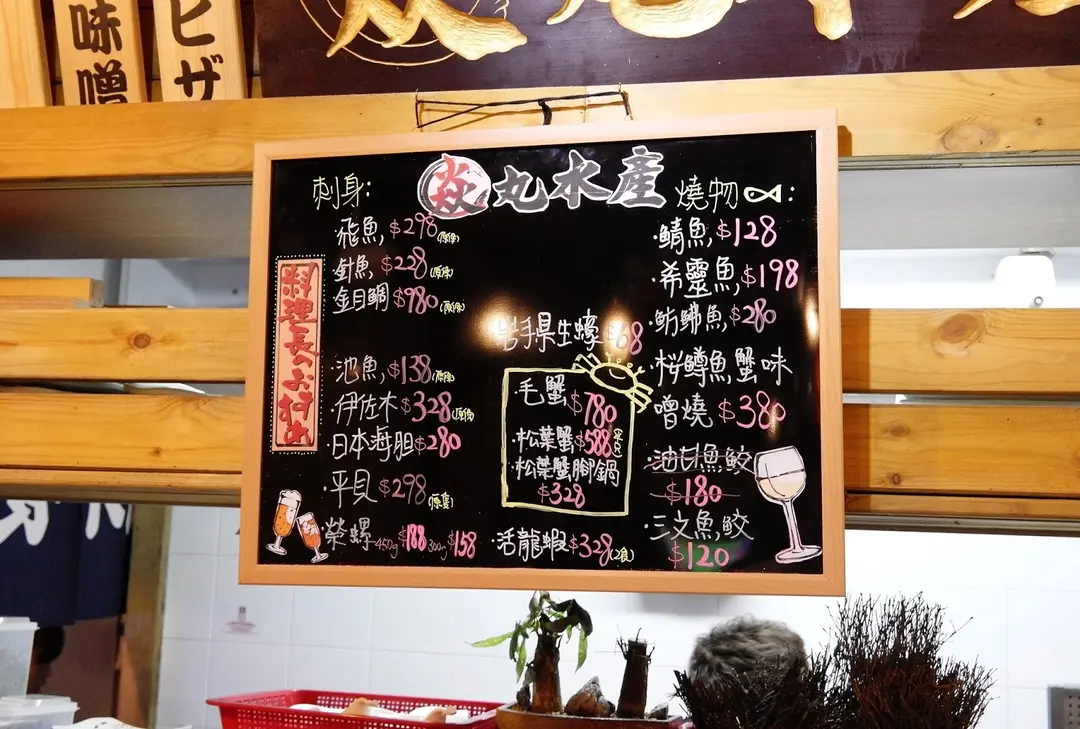 味噌
ピザ
焱丸水產
刺身:
飛魚, $298(原條)
針魚, $228(原條)
金目鯛 $980(原條)
池魚, $138(原條)
伊佐木 $328(原條)
日本海胆 $280
平貝 $298(原隻)
榮螺 450g $188 300g $158
料理長のおすすめ
岩手県生蠔 $68
毛蟹 $780
松葉蟹 $588
松葉蟹腳鍋
$328
活龍蝦 $328(2食)
燒物:
鯖魚, $128
希靈魚, $198
魴鮄魚, $280
桜鱒魚蟹味
噌燒 $380
油甘魚鮫
$180
三文魚鮫
$120